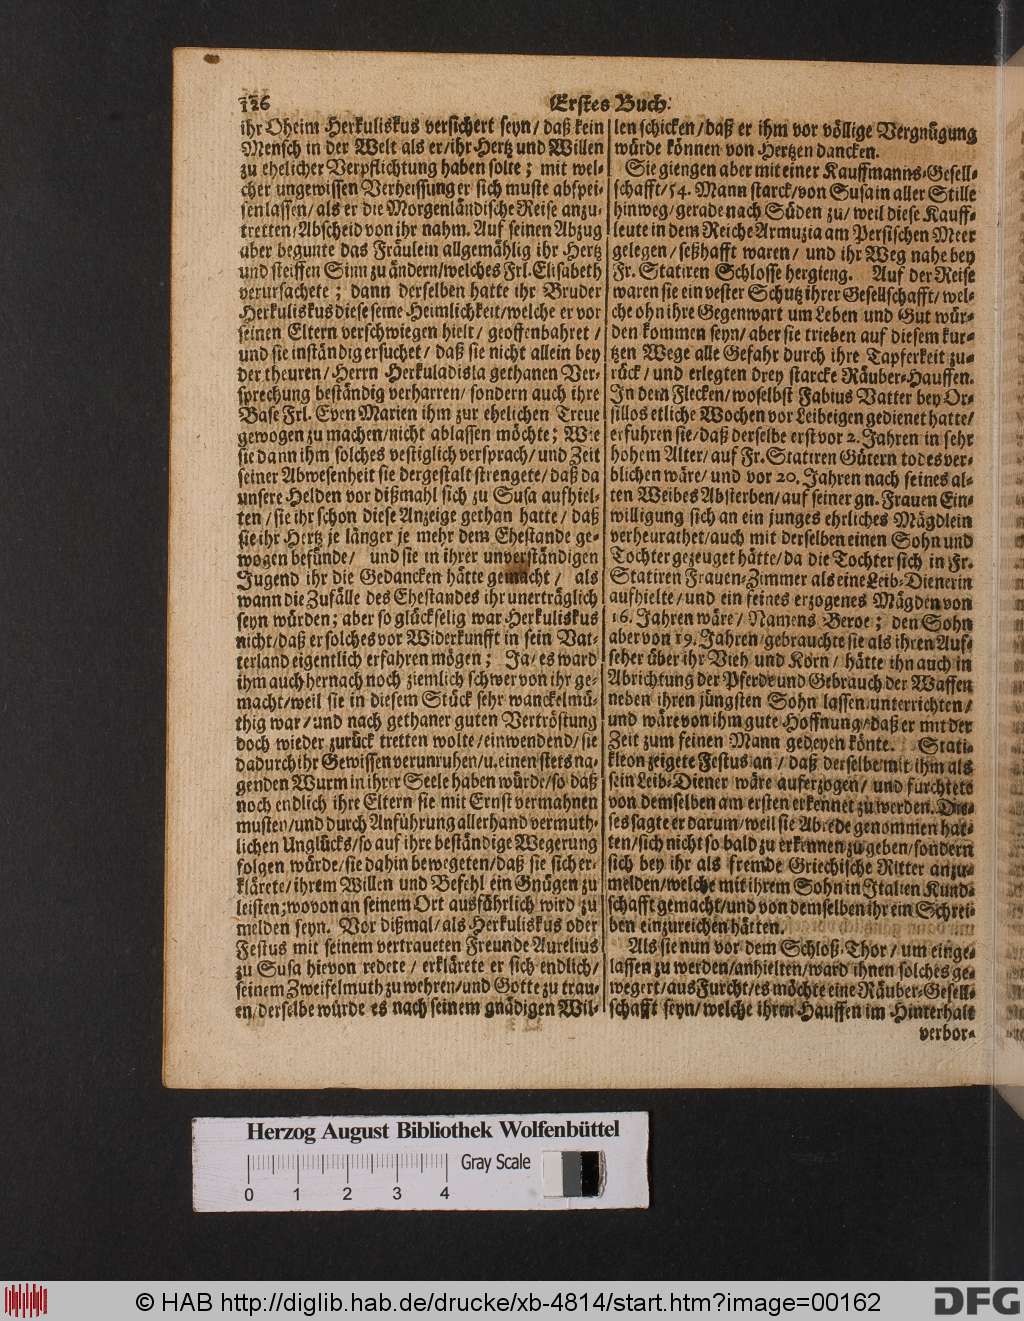 126
Erstes Buch:
ihr Oheim Herkuliskus versichert seyn/ daß kein
Mensch in der Welt als er/ ihr Hertz und Willen
zu ehelicher Verpflichtung haben solte; mit wel-
cher ungewissen Verheissung er sich muste abspei-
sen lassen/ als er die Morgenländische Reise anzu-
tretten/ Abscheid von ihr nahm. Auf seinen Abzug
aber begunte das Fräulein allgemählig ihr Hertz
und steiffen Sinn zu ändern/ welches Frl. Elisabeth
verursachete; dann derselben hatte ihr Bruder
Herkuliskus diese seine Heimlichkeit/ welche er vor
seinen Eltern verschwiegen hielt/ geoffenbahret/
und sie inständig ersuchet/ daß sie nicht allein bey
der theuren/ Herrn Herkuladisla gethanen Ver-
sprechung beständig verharren/ sondern auch ihre
Base Frl. Even Marien ihm zur ehelichen Treue
gewogen zu machen/ nicht ablassen möchte; Wie
sie dann ihm solches vestiglich versprach/ und Zeit
seiner Abwesenheit sie dergestalt strengete/ daß da
unsere Helden vor dißmahl sich zu Susa aufhiel-
ten/ sie ihr schon diese Anzeige gethan hatte/ daß
sie ihr Hertz je länger je mehr dem Ehestande ge-
wogen befünde/ und sie in ihrer unverständigen
Jugend ihr die Gedancken hätte gemacht/ als
wann die Zufälle des Ehestandes ihr unerträglich
seyn würden; aber so glückselig war Herkuliskus
nicht/ daß er solches vor Widerkunfft in sein Vat-
terland eigentlich erfahren mögen; Ja/ es ward
ihm auch hernach noch ziemlich schwer von ihr ge-
macht/ weil sie in diesem Stück sehr wanckelmü-
thig war/ und nach gethaner guten Vertröstung
doch wieder zurück tretten wolte/ einwendend/ sie
dadurch ihr Gewissen verunruhen/ u. einen stets na-
genden Wurm in ihrer Seele haben würde/ so daß
noch endlich ihre Eltern sie mit Ernst vermahnen
musten/ und durch Anführung allerhand vermuth-
lichen Unglücks/ so auf ihre beständige Wegerung
folgen würde/ sie dahin bewegeten/ daß sie sich er-
klärete/ ihrem Willen und Befehl ein Gnügen zu
leisten; wovon an seinem Ort ausführlich wird zu
melden seyn. Vor dißmal/ als Herkuliskus oder
Festus mit seinem vertraueten Freunde Aurelius
zu Susa hievon redete/ erklärete er sich endlich/
seinem Zweifelmuth zu wehren/ und Gotte zu trau-
en/ derselbe würde es nach seinem gnädigen Wil-
len schicken/ daß er ihm vor völlige Vergnügung
würde können von Hertzen dancken.
Sie giengen aber mit einer Kauffmanns-Gesell-
schafft/ 54. Mann starck/ von Susa in aller Stille
hinweg/ gerade nach Süden zu/ weil diese Kauff-
leute in dem Reiche Armuzia am Persischen Meer
gelegen/ seßhafft waren/ und ihr Weg nahe bey
Fr. Statiren Schlosse hergieng. Auf der Reise
waren sie ein vester Schutz ihrer Gesellschafft/ wel-
che ohn ihre Gegenwart um Leben und Gut wür-
den kommen seyn/ aber sie trieben auf diesem kur-
tzen Wege alle Gefahr durch ihre Tapferkeit zu-
rück/ und erlegten drey starcke Räuber-Hauffen.
In dem Flecken/ woselbst Fabius Vatter bey Or-
sillos etliche Wochen vor Leibeigen gedienet hatte/
erfuhren sie/ daß derselbe erst vor 2. Jahren in sehr
hohem Alter/ auf Fr. Statiren Gütern todes ver-
blichen wäre/ und vor 20. Jahren nach seines al-
ten Weibes Absterben/ auf seiner gn. Frauen Ein-
willigung sich an ein junges ehrliches Mägdlein
verheurathet/ auch mit derselben einen Sohn und
Tochter gezeuget hätte/ da die Tochter sich in Fr.
Statiren Frauen-Zimmer als eine Leib-Dienerin
aufhielte/ und ein feines erzogenes Mägden von
16. Jahren wäre/ Namens Beroe; den Sohn
aber von 19. Jahren/ gebrauchte sie als ihren Auf-
seher über ihr Vieh und Korn/ hätte ihn auch in
Abrichtung der Pferde und Gebrauch der Waffen
neben ihren jüngsten Sohn lassen unterrichten/
und wäre von ihm gute Hoffnung/ daß er mit der
Zeit zum feinen Mann gedeyen könte. Stati-
kleon zeigete Festus an/ daß derselbe mit ihm als
sein Leib-Diener wäre auferzogen/ und fürchtete
von demselben am ersten erkennet zu werden. Die-
ses sagte er darum/ weil sie Abrede genommen hat-
ten/ sich nicht so bald zu erkennen zu geben/ sondern
sich bey ihr als fremde Griechische Ritter anzu-
melden/ welche mit ihrem Sohn in Italien Kund-
schafft gemacht/ und von demselben ihr ein Schrei-
ben einzureichen hätten.
Als sie nun vor dem Schloß-Thor/ um einge-
lassen zu werden/ anhielten/ ward ihnen solches ge-
wegert/ aus Furcht/ es möchte eine Räuber-Gesell-
schafft seyn/ welche ihren Hauffen im Hinterhalt
verbor-
Herzog August Bibliothek Wolfenbüttel
Gray Scale
0 1 2 3 4
© HAB http://diglib.hab.de/drucke/xb-4814/start.htm?image=00162
DFG